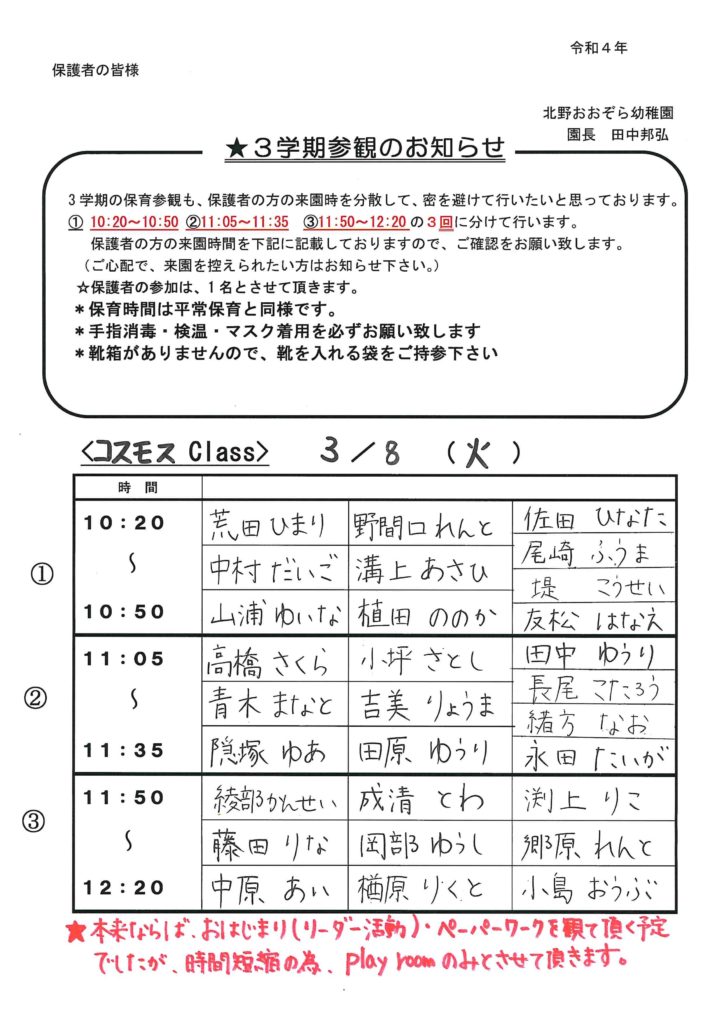 令和４年
保護者の皆様
北野おおぞら幼稚園
園長　田中邦弘
★３学期参観のお知らせ
３学期の保育参観も、保護者の方の来園時を分散して、密を避けて行いたいと思っております。
① 10:20～10:50 ②11:05～11:35 ③11:50～12:20 の３回に分けて行います。
保護者の方の来園時間を下記に記載しておりますので、ご確認をお願い致します。
（ご心配で、来園を控えられたい方はお知らせ下さい。）
☆保護者の参加は、１名とさせて頂きます。
＊保育時間は平常保育と同様です。
＊手指消毒・検温・マスク着用を必ずお願い致します
＊靴箱がありませんので、靴を入れる袋をご持参下さい
<コスモス Class> 3／8（火）
時 間
①
10：20
～
10：50
荒田 ひまり 野間口 れんと 佐田 ひなた
中村 だいご 溝上 あさひ 尾崎 ふうま
山浦 ゆいな 植田 ののか 堤 こうせい
友松 はなえ
②
11：05
～
11：35
高橋 さくら 小坪 さとし 田中 ゆうり
青木 まなと 吉美 りょうま 長尾 こたろう
隠塚 ゆあ 田原 ゆうり 緒方 なお
永田 たいが
③
11：50
～
12：20
綾部 かんせい 成清 とわ 渕上 りこ
藤田 りな 岡部 ゆうし 郷原 れんと
中原 あい 楢原 りくと 小島 おうぶ
★本来ならば、おはじまり(リーダー活動)・ペーパーワークを観て頂く予定
でしたが、時間短縮の為、play roomのみとさせて頂きます。